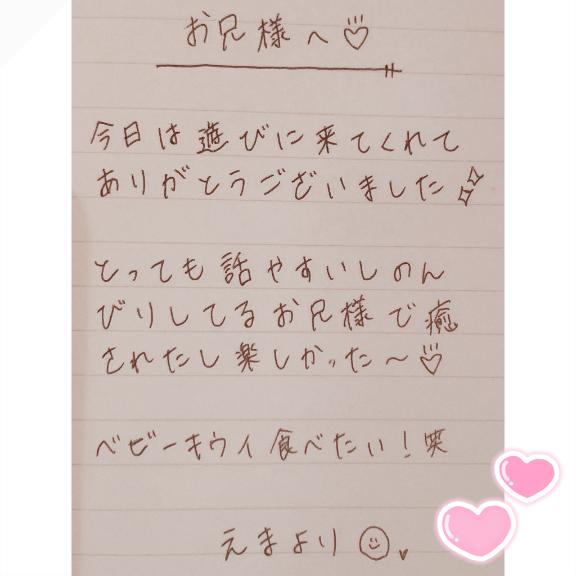 お兄様へ♡
今日は遊びに来てくれて
ありがとうございました✨
とっても話やすいしのん
びりしてるお兄様で癒
されたし楽しかった〜♡
ベビーキウイ食べたい！笑
えまより☺♥